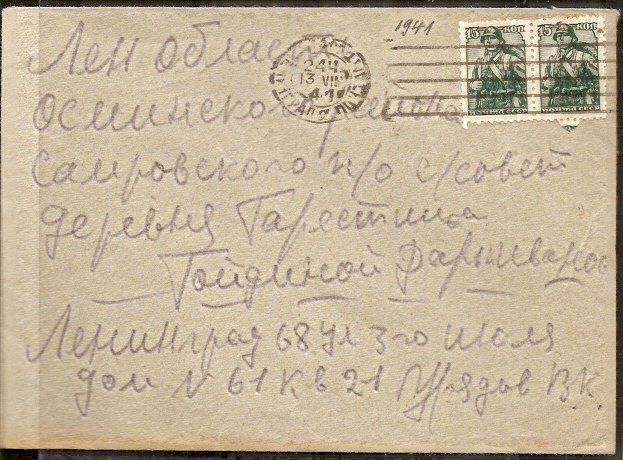 1941
15 КОП 15 КОП
ПОЧТА СССР ПОЧТА СССР
24Ч
13 VIII
41
Лен Области
Осминского района
Самровского п/о с/совет
деревня
Гойдиной Дарье
Ленинград 68 ул 3-го июля
дом N 61 кв 21 В.К.